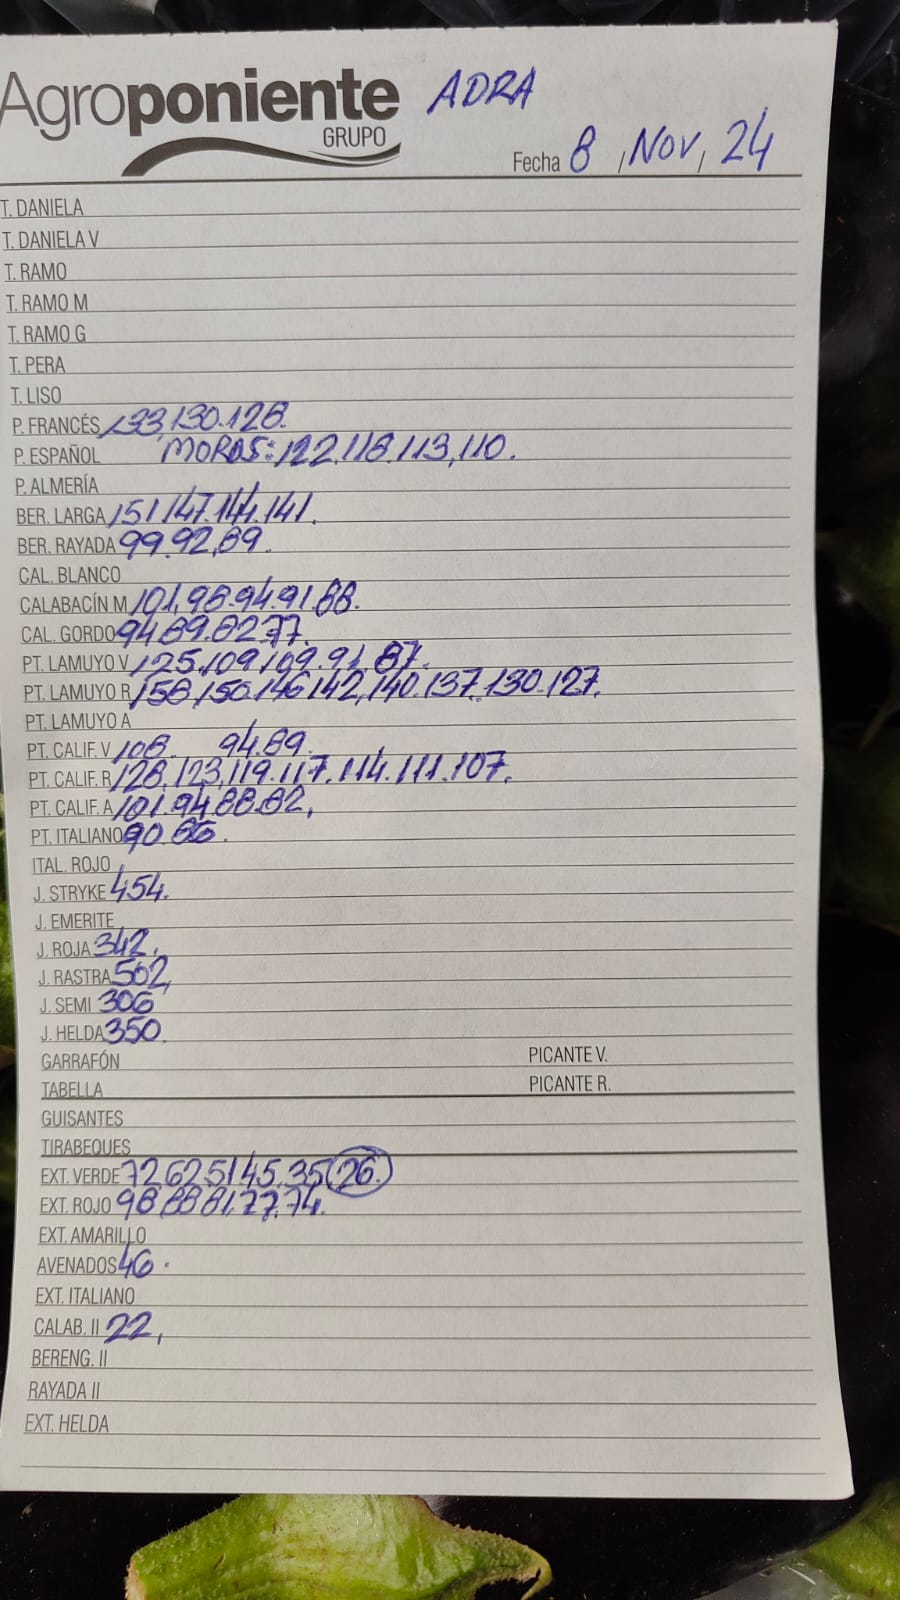 Agroponiente ADRA
GRUPO
Fecha 8, Nov, 24
T. DANIELA
T. DANIELA V
T. RAMO
T. RAMO M
T. RAMO G
T. PERA
T. LISO
P. FRANCÉS 133,130.128.
P. ESPAÑOL MOROS: 122.118.113,110.
P. ALMERÍA
BER. LARGA 151.147.144.141.
BER. RAYADA 99.92,89.
CAL. BLANCO
CALABACÍN M 101,98.94.91.88.
CAL. GORDO 94.89.82.77.
PT. LAMUYO V 125.109.109.91.87.
PT. LAMUYO R 158,150.146.142,140.137.130.127.
PT. LAMUYO A
PT. CALIF. V 108. 94.89.
PT. CALIF. R 128,123,119.117.114.111.107.
PT. CALIF. A 101.94.88.82,
PT. ITALIANO 90.86.
ITAL. ROJO
J. STRYKE 454.
J. EMERITE
J. ROJA 342,
J. RASTRA 502,
J. SEMI 306
J. HELDA 350.
GARRAFÓN PICANTE V.
TABELLA PICANTE R.
GUISANTES
TIRABEQUES
EXT. VERDE 72.62.51.45.35.26.
EXT. ROJO 98.88.81,77.74.
EXT. AMARILLO
AVENADOS 46.
EXT. ITALIANO
CALAB. II 22,
BERENG. II
RAYADA II
EXT. HELDA